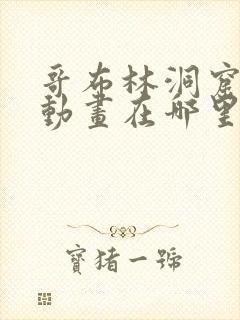 哥布林洞窟
動畫在哪里
寶猪一號